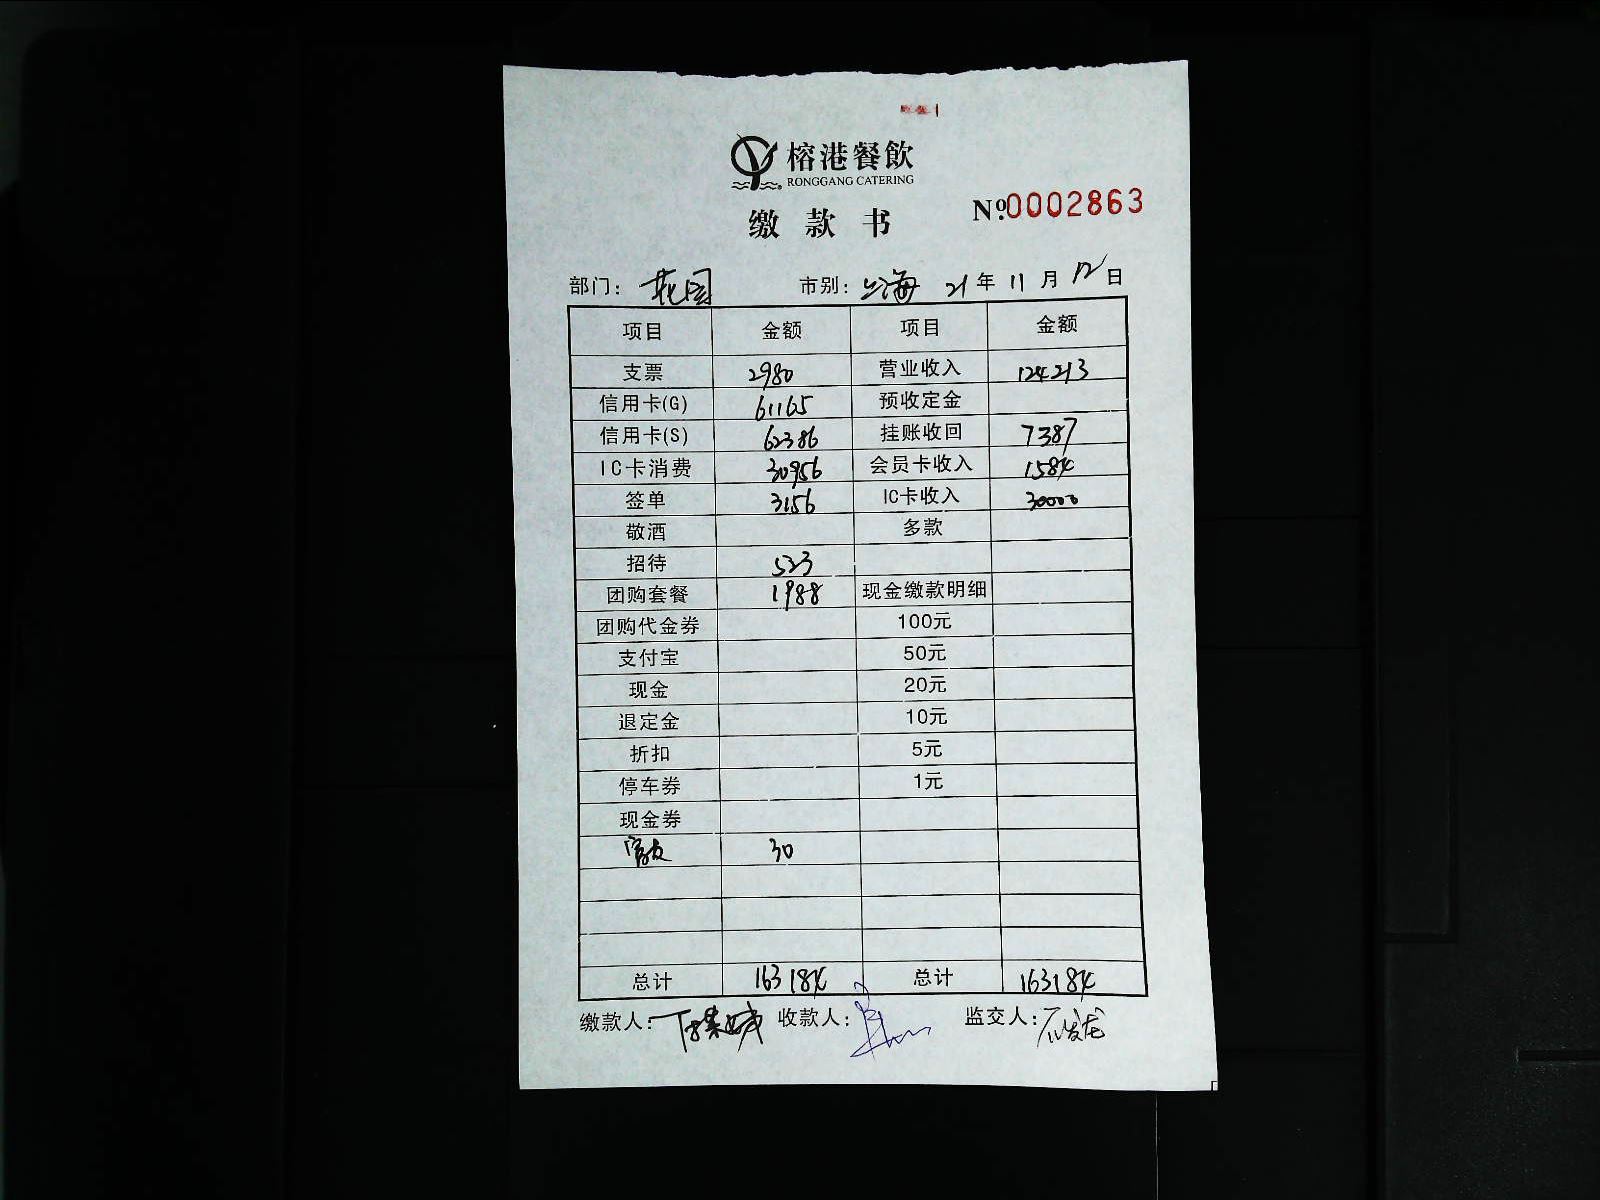 榕港餐飲
RONGGANG CATERING
缴款书
№0002863
部门：花园 市别：上海 21年11月12日
项目 金额 项目 金额
支票 2980 营业收入 124213
信用卡(G) 61165 预收定金
信用卡(S) 62386 挂账收回 7387
IC卡消费 30956 会员卡收入 1584
签单 3156 IC卡收入 30000
敬酒 多款
招待 523
团购套餐 1988 现金缴款明细
团购代金券 100元
支付宝 50元
现金 20元
退定金 10元
折扣 5元
停车券 1元
现金券
30
总计 163184 总计 163184
缴款人： 收款人： 监交人：